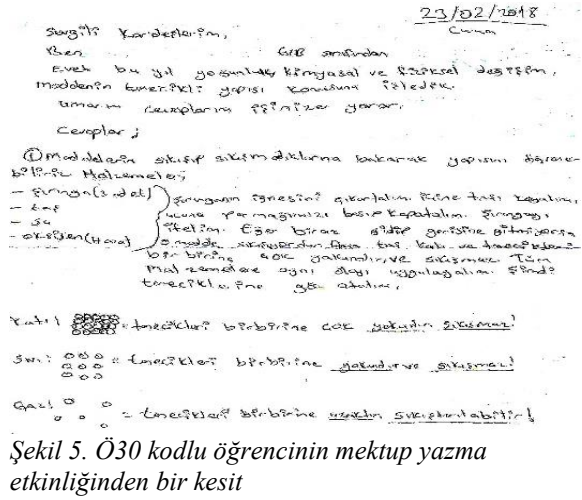 23/02/2018
Cuma
Sevgili Kardeşlerim,
Ben 6/B sınıfından
Evet bu yıl yoğunluk, kimyasal ve fiziksel değişim,
maddenin tanecikli yapısı konusunu izledik.
umarım cevaplarım işinize yarar.
Cevaplar ;
① Maddelerin sıkışıp sıkışmadıklarına bakarak yapısını öğrene-
biliriz Malzemeler;
- Şırınga(3 adet)
- taş
- Su
- oksijen(Hava)
Şırınganın iğnesini çıkartalım. içine taşı koyalım,
ucuna parmağımızı basıp kapatalım. Şırıngayı
itelim. Eğer biraz gidip gerisine gitmiyorsa
o madde taş katı ve tanecikleri
birbirine çok yakındır, ve sıkışmaz Tüm
malzemelere aynı olayı uygulayalım. Şimdi
taneciklerine göz atalım.
Katı: = tanecikleri birbirine çok yakındır sıkışmaz!
Sıvı: = tanecikleri birbirine yakındır ve sıkışmaz!
Gaz: = tanecikleri birbirine uzaktır sıkıştırılabilir!
Şekil 5. Ö30 kodlu öğrencinin mektup yazma
etkinliğinden bir kesit